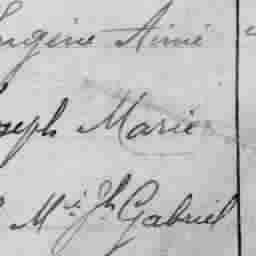 Eugène Aimé
Joseph Marie
Mie Jh Gabriel